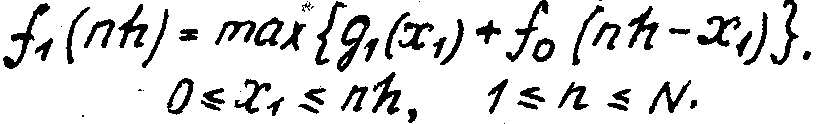 f₁(nh) = max{g₁(x₁) + f₀(nh - x₁)}.
0 ≤ x₁ ≤ nh, 1 ≤ n ≤ N.